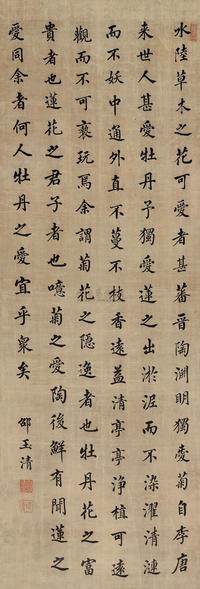 水陸草木之花可愛者甚蕃晋陶渊明獨愛菊自李唐
来世人甚愛牡丹予獨愛蓮之出淤泥而不染濯清漣
而不妖中通外直不蔓不枝香遠益清亭亭浄植可遠
觀而不可亵玩焉余謂菊花之隐逸者也牡丹花之富
貴者也蓮花之君子者也噫菊之愛陶後鮮有聞蓮之
愛同余者何人牡丹之愛宜乎衆矣
邵玉清